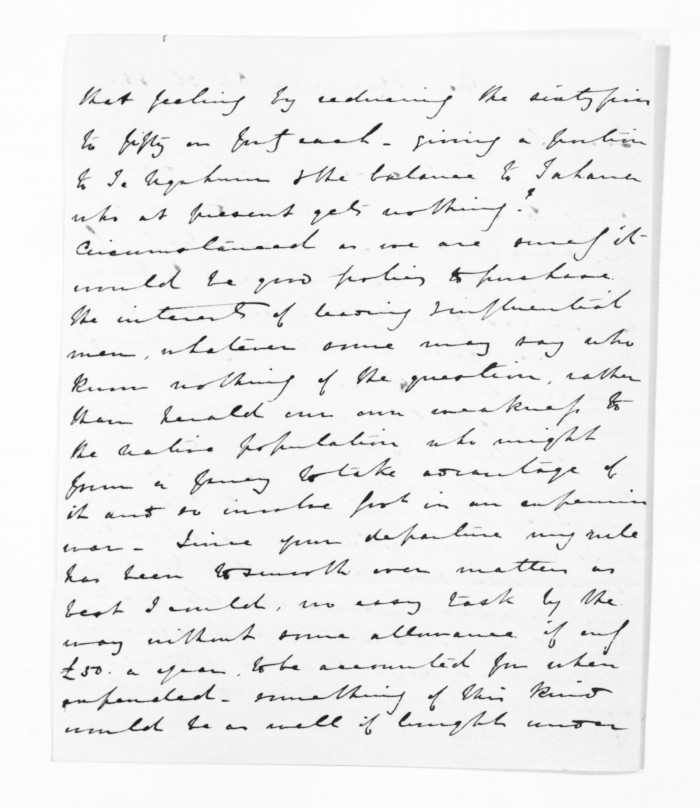 that feeling by reducing the sixty five
to fifty or forty each – giving a portion
to Te Ngahuru & the balance to Tahana
who at present gets nothing.?
Circumstanced as we are surely it
would be good policy to purchase
the interests of leading & influential
men, whatever some may say who
know nothing of the question, rather
than herald our own weakness to
the native population who might
form a fancy to take advantage of
it and so involve Govt in an expensive
war – Since your departure my rule
has been to smooth over matters as
best I could, no easy task by the
way without some allowance if only
£50. a year, to be accounted for when
expended – something of this kind
would be as well if brought under